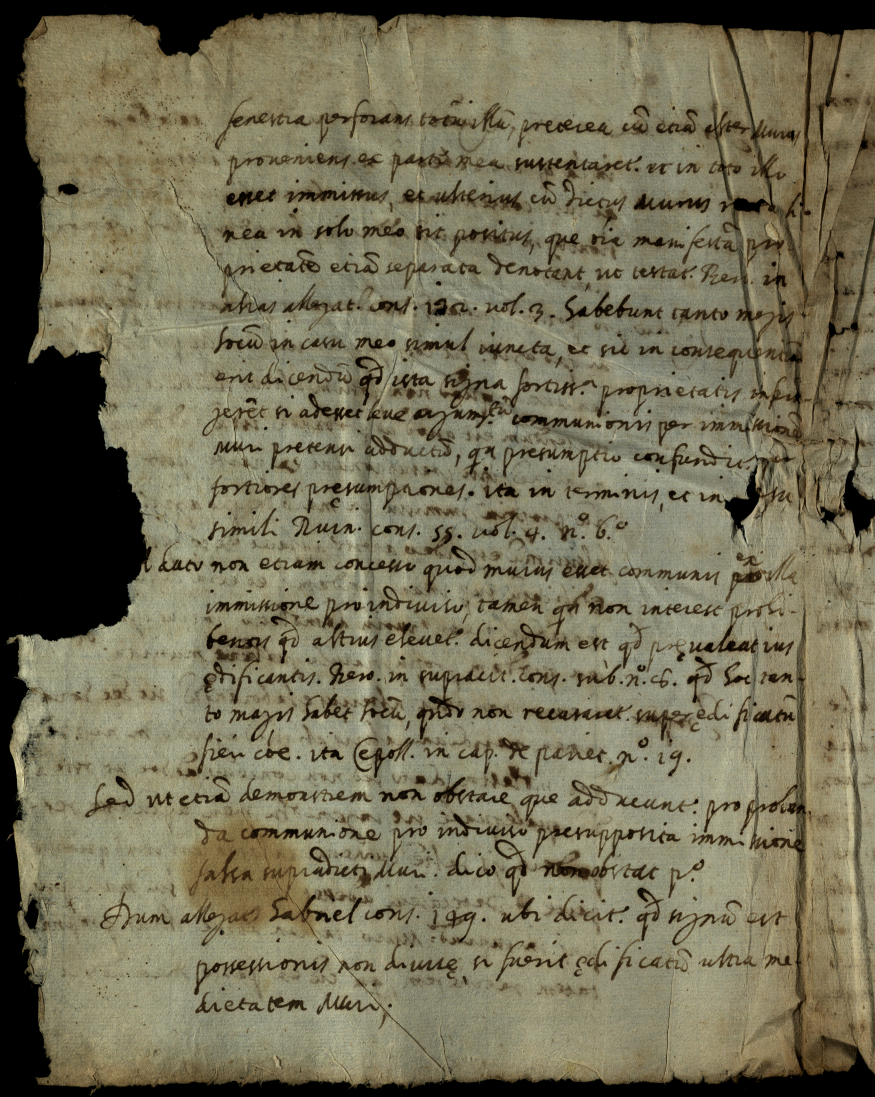 fenestra perforans totũ illũ, preterea cũ etiã alter Murus
proveniens ex parte mea sustentaret. et in toto illo
esset immissus, et ulterius cũ dictus Murus recta li-
nea in solo meo sit positus, que oĩa manifestã pro
prietatẽ etiã separatã denotant, ut testat. Rer. in
alias allegat. cons. vol. 3. habebunt tanto magis
locũ in casu meo simul iuncta, et sic in consequentiã
erit dicendũ qd ista signa fortiss.ª proprietatis
gerẽt si adesset communionis per immissionẽ
Muri pretensi adductũ, qa presumptio confundit. per
fortiores presumptiones. ita in terminis, et in
simili Ruin. cons. 55. vol. 4. nº. 6.º
dato non etiam concesso quod murus esset communis ex illa
immissione proindiviso, tamen qa non interest prohi-
bentis qd altius elevet. dicendum est qd pręvaleat ius
ędificantis. Rero. in supracit. cons. sub. nº. 6. qd hoc tan-
to magis habet locũ, qñdo non recusaret. super ędificatũ
fieri cõe. ita Cepoll. in cap. de pariet. nº. 19.
Sed ut etiã demonstrem non obstare que adducunt. pro proban
da communione pro indiviso presupposita immissione
falsa supradicti Muri. dico qd non obstat pº
Dum allegat Gabriel cons. 149. ubi dicit. qd signũ est
possessionis non divisę si fuerit ędificatũ ultra me-
dietatem Muri,